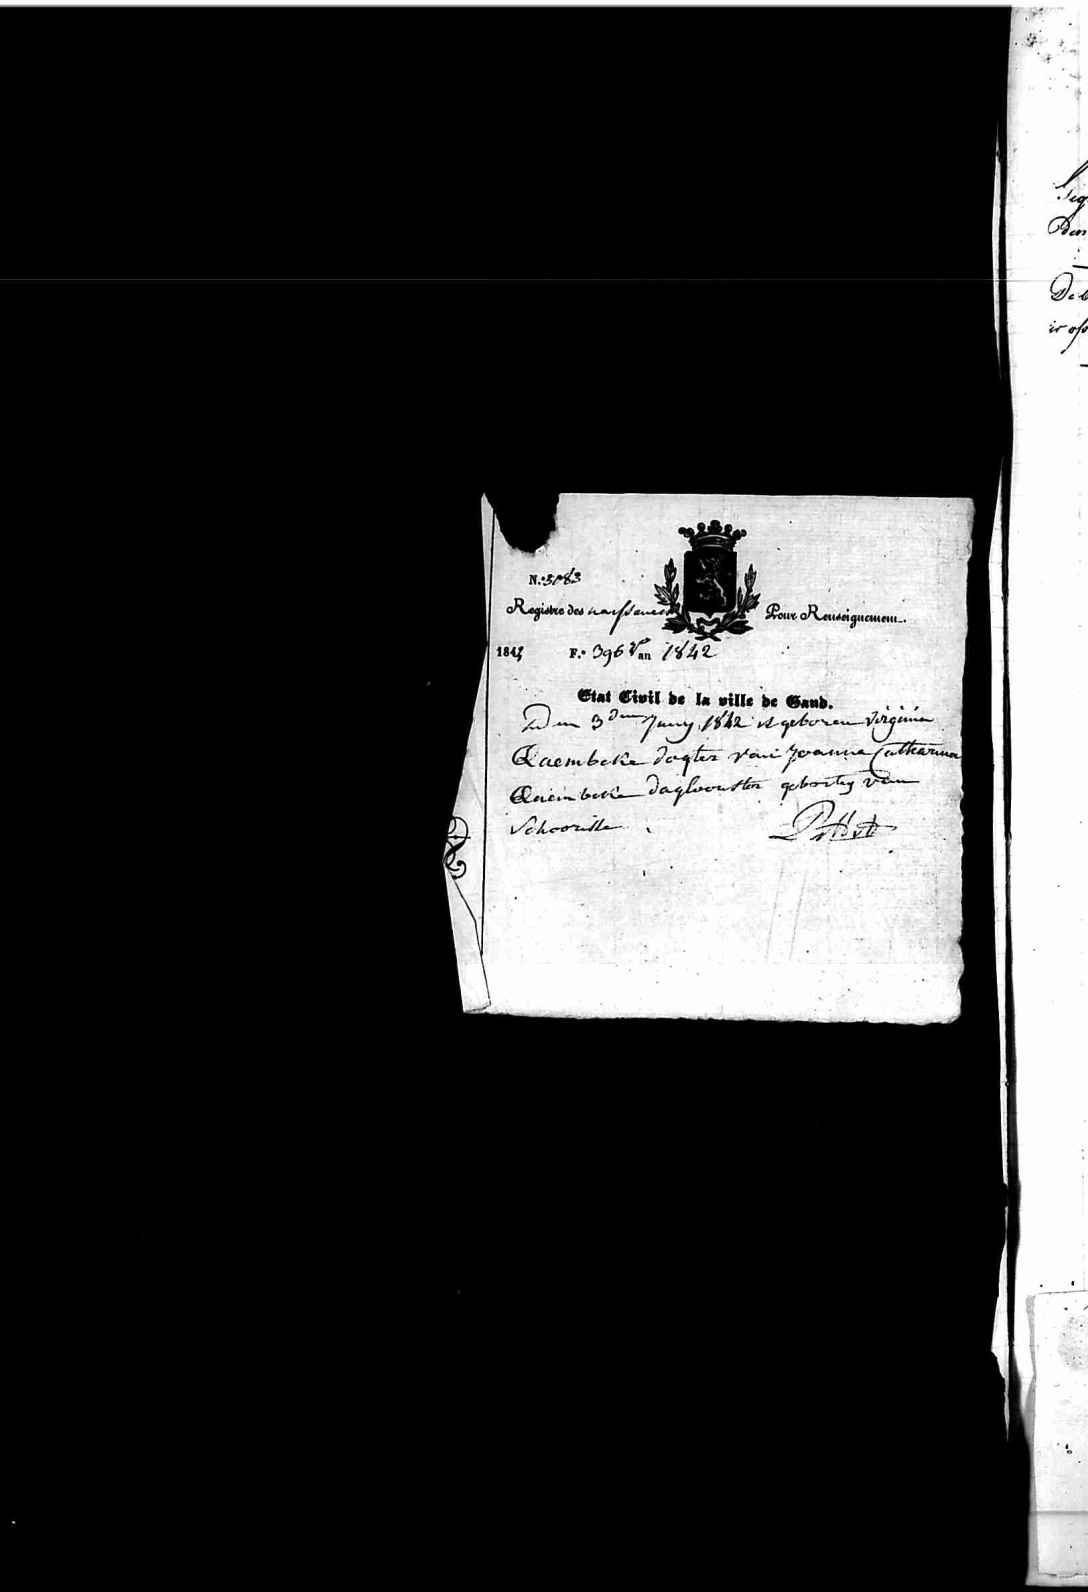 N.º 3083
Registre des naissances Pour Renseignement.
184 F.º 396 vº an 1842
Etat Civil de la ville de Gand.
Den 3den Juny 1842 is geboren Virginia
Quaembeke dogter van Joanna Catharina
Quaembeke dagloonster geboortig van
Schoorisse